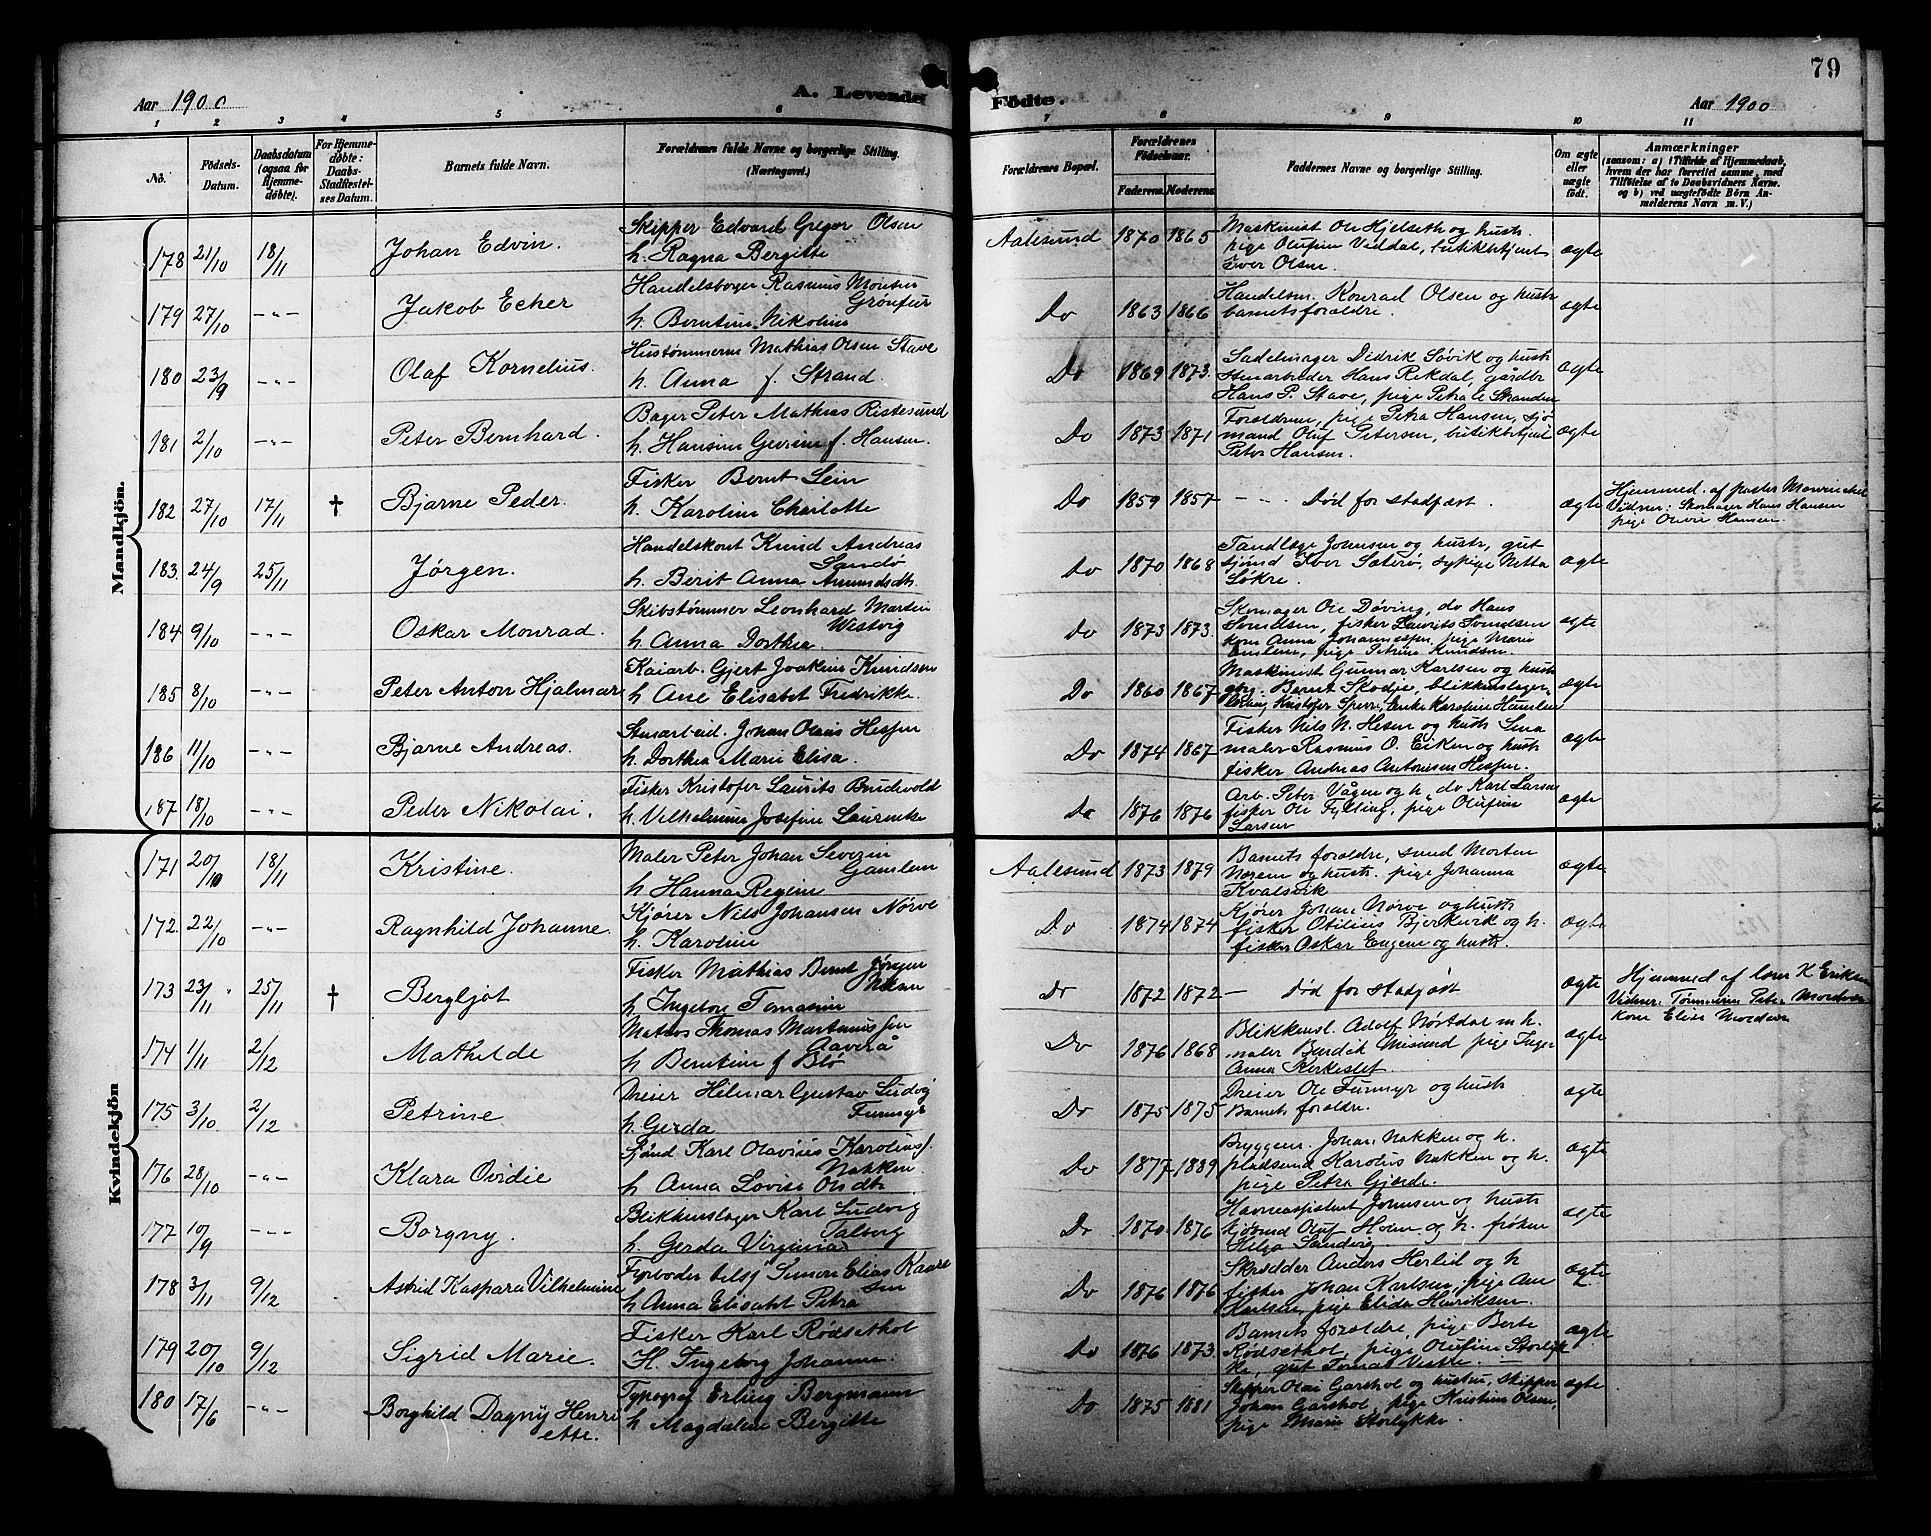 79
Aar 1900
A. Levende
Fødte.
Aar 1900
1 2 3 4 5 6 7 8 9 10 11
No.
Fødsels-Datum.
Daabsdatum (ogsaa for Hjemmedøbte).
For Hjemmedøbte: Daabs-Stadfæstelses Datum.
Barnets fulde Navn.
Forældrenes fulde Navne og borgerlige Stilling. (Næringsvei.)
Forældrenes Bopæl.
Forældrenes Fødselsaar.
Faderens. Moderens.
Faddernes Navne og borgerlige Stilling.
Om ægte eller uægte født.
Anmærkninger
(saasom: a) i Tilfælde af Hjemmedaab, hvem der har forrettet samme, med Tilføielse af to Daabsvidners Navne. og b) ved uægtefødte Børn Anmelderens Navn m. V.)
Mandkjön.
178 21/10 18/11 Johan Edvin. Skipper Edvard Gregor Olsen
h. Ragna Bergitte
Aalesund 1870 1865 Maskinist Ole Hjelseth og hustr.
pige Olufine Viddal, butikbetjent
Iver Olsen. ægte
179 27/10 -"- Jakob Echer Handelsborger Rasmus Monsen
h. Berntine Nikoline
Do 1863 1866 Handelsm. Konrad Olsen og hustr
barnets forældre. ægte
180 23/9 -"- Olaf Kornelius. Hustømmerm Mathias Olsen Stave
h. Anna f. Strand.
Do 1869 1873. Sadelmager Didrik Søvik og hustr
Stenarbeider Hans Rekdal, gårdbr
Hans P. Stave, pige Petra Stranden ægte
181 2/10 -"- Peter Bernhard. Bager Peter Mathias Ristesund
h. Hansine f. Hansen.
Do 1873 1871 Forældrene, pige Petra Hansen, sjø
mand Oluf Petersen, butikbetjent
Peter Hansen. ægte
182 27/10 17/11 † Bjarne Peder. Fisker Bernt Lein
h. Karoline Charlotte
Do 1859 1857 - - Død før stadfæst. ægte
Hjemmed. af
Vidner: Skomager Hans Hansen
pige Hansen.
183. 24/9 25/11 Jørgen. Handelskont Knud Andreas
Sandø
h. Berit Anna Amundsdtr.
Do 1870 1868 Tandlæge Johnsen og hustr, gut
Iver Sætrø, sypige Netta
Løkre. ægte
184 9/10 -"- Oskar Monrad. Skibstømmer Leonhard Martin
Westvig
h. Anna Dorthea
Do 1873 1873. Skomager Ole Døving, do Hans
Sundsen, fisker Laurits Sundsen
kone Anna Johannessen, pige Marie
pige Petrine Knudsen. ægte
185 8/10 -"- Peter Anton Hjalmar Kaiarb. Gjert Joakim Knudsen
h. Ane Elisabet Fredrikke.
Do 1860 1867 Maskinist Gunnar Karlsen og hustr
Bernt Skodje, blikkenslager
Kristofer Enke Karoline ægte
186 11/10 -"- Bjarne Andreas. Stenarbeid. Johan Olaus Hessen
h. Dorthea Marie Elisa.
Do 1874 1867 Fisker Nils N. Hessen og hustr Lena
maler Rasmus O. Eiken og hustr
fisker Andreas Antonsen Hessen. ægte
187 18/10 -"- Peder Nikolai. Fisker Kristofer Laurits Breidvold
h. Vilhelmine Josefine Laurentse
Do 1876 1876 Arb. Peter Vågen og h, do Karl Larsen
fisker Ole Fylling, pige Olufine
Larsen ægte
Kvindekjön
171 20/10 18/11 Kristine. Maler Peter Johan Severin
Gamlem
h. Hanna Regine
Aalesund 1873 1879 Barnets forældre, svend Morten
Nerem og hustr. pige Johanna
Kvalsvik ægte
172 22/10 -"- Ragnhild Johanne. Kjører Nils Johansen Nørve
h. Karoline
Do 1874 1874 Kjører Johan Nørve og hustr
fisker Otilius Bjerkevik og h.
fisker Oskar Eugen og hustr. ægte
173 23/11 25/11 † Bergljot Fisker Mathias Bernt Jørgen
h. Ingeborg Tomasine
Do 1872 1872 - Død før stadfæst ægte
Hjemmed af lærer K Eriksen
Vidner: Tømmerm Peter
kone Elise
174 1/11 2/12 Mathilde Matros Thomas Martinussen
Aaverå
h Berntine f Blø
Do 1876 1868 Blikkensl. Adolf Nørtdal m h.
maler Bardik Misund pige Inger
Anna Kirkeslet. ægte
175 3/10. 2/12 Petrine Dreier Helmar Gustav Ludvig
Furmyr
h. Gerda
Do 1875 1875 Dreier Ole Furmyr og hustr
Barnets forældre. ægte
176 28/10 -"- Klara Ovidie Sjømd Karl Olavius Karoliuss.
Nakken
h Anna Lovise Olsdtr
Do 1877 1889 Bryggem. Johan Nakken og h.
pladsmd Karolus Nakken og h.
pige Petra Gjerde. ægte
177 10/9 -"- Borgny. Blikkenslager Karl Ludvig
Talberg
h. Gerda Virginia
Do 1870. 1876 Havneassistent Johnsen og hustr
Oluf Holm og h. frøken
Helga Sandvig ægte
178 3/11 9/12 Astrid Kaspara Vilhelmine Fyrbøder Simon Elias Kaare
sen
h Anna Elisabet Petra
Do 1876 1876 Skrædder Anders Herlid og h
fisker Johan Karlsen, pige Ane
Karlsen, pige Elida Henriksen. ægte
179 20/10 9/12 Sigrid Marie. Fisker Karl Rødsethol
H. Ingeborg Johanne.
Do 1876 1873. Barnets forældre, pige Berte
Rødsethol, pige Olufine Storlyk
ke, gut Tomas ægte
180 17/6 -"- Borghild Dagny Henri
ette. Typograf Erling Bergmann
h Magdalene Bergitte
Do 1875 1881 Skipper Olai Garshol og hustru, skipper
Johan Garshol, pige Kristine Olsen,
pige Marie Storlykke. ægte